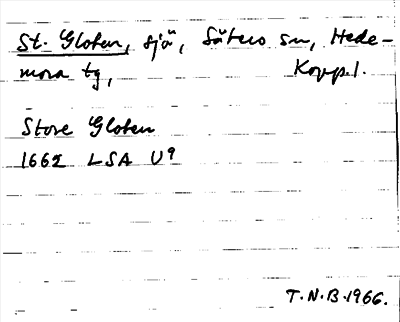 St. Gloten, sjö, Säters sn, Hede-
mora tg, Kopp.l.
Store Gloten
1662 LSA U9
T.N.B.1966.